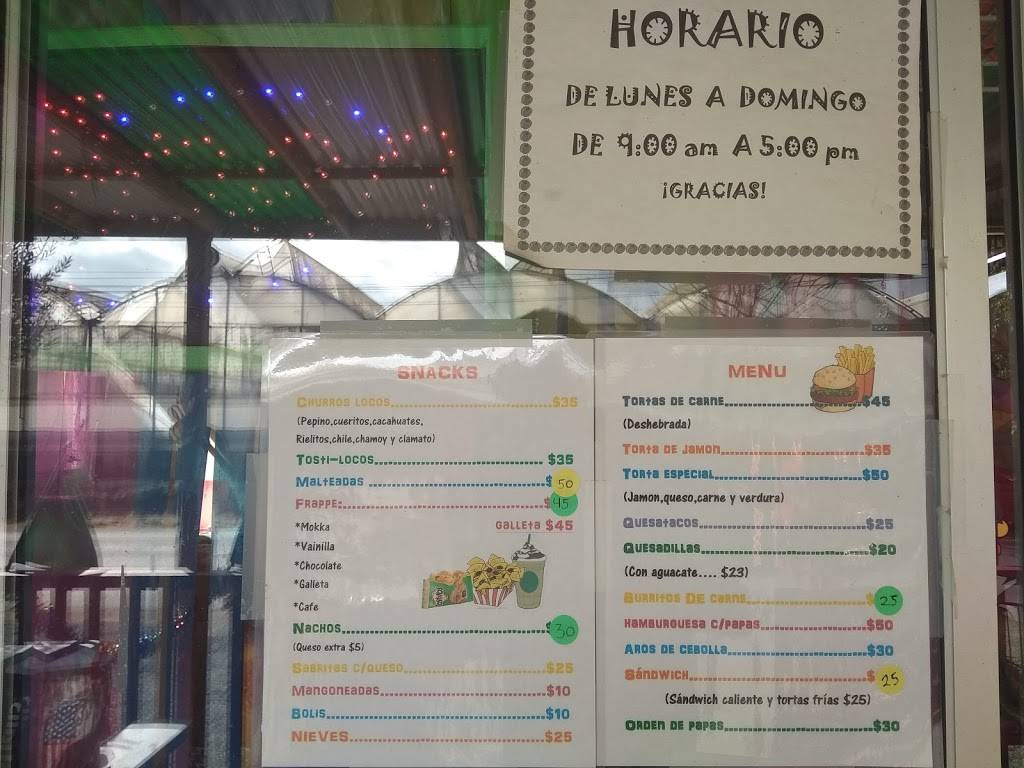 HORARIO
DE LUNES A DOMINGO
DE 9:00 am A 5:00 pm
¡GRACIAS!
SNACKS
CHURROS LOCOS $35
(Pepino,cueritos,cacahuates,
Rielitos,chile,chamoy y clamato)
TOSTI-LOCOS $35
MALTEADAS $50
FRAPPE: $45
*Mokka GALLETA $45
*Vainilla
*Chocolate
*Galleta
*Cafe
NACHOS $30
(Queso extra $5)
SABRITAS C/QUESO $25
MANGONEADAS $10
BOLIS $10
NIEVES $25
MENU
TORTAS DE CARNE $45
(Deshebrada)
TORTA DE JAMON $35
TORTA ESPECIAL $50
(Jamon,queso,carne y verdura)
QUESATACOS $25
QUESADILLAS $20
(Con aguacate.... $23)
BURRITOS DE CARNE $25
HAMBURGUESA C/PAPAS $50
AROS DE CEBOLLA $30
SÁNDWICH $25
(Sándwich caliente y tortas frías $25)
ORDEN DE PAPAS $30